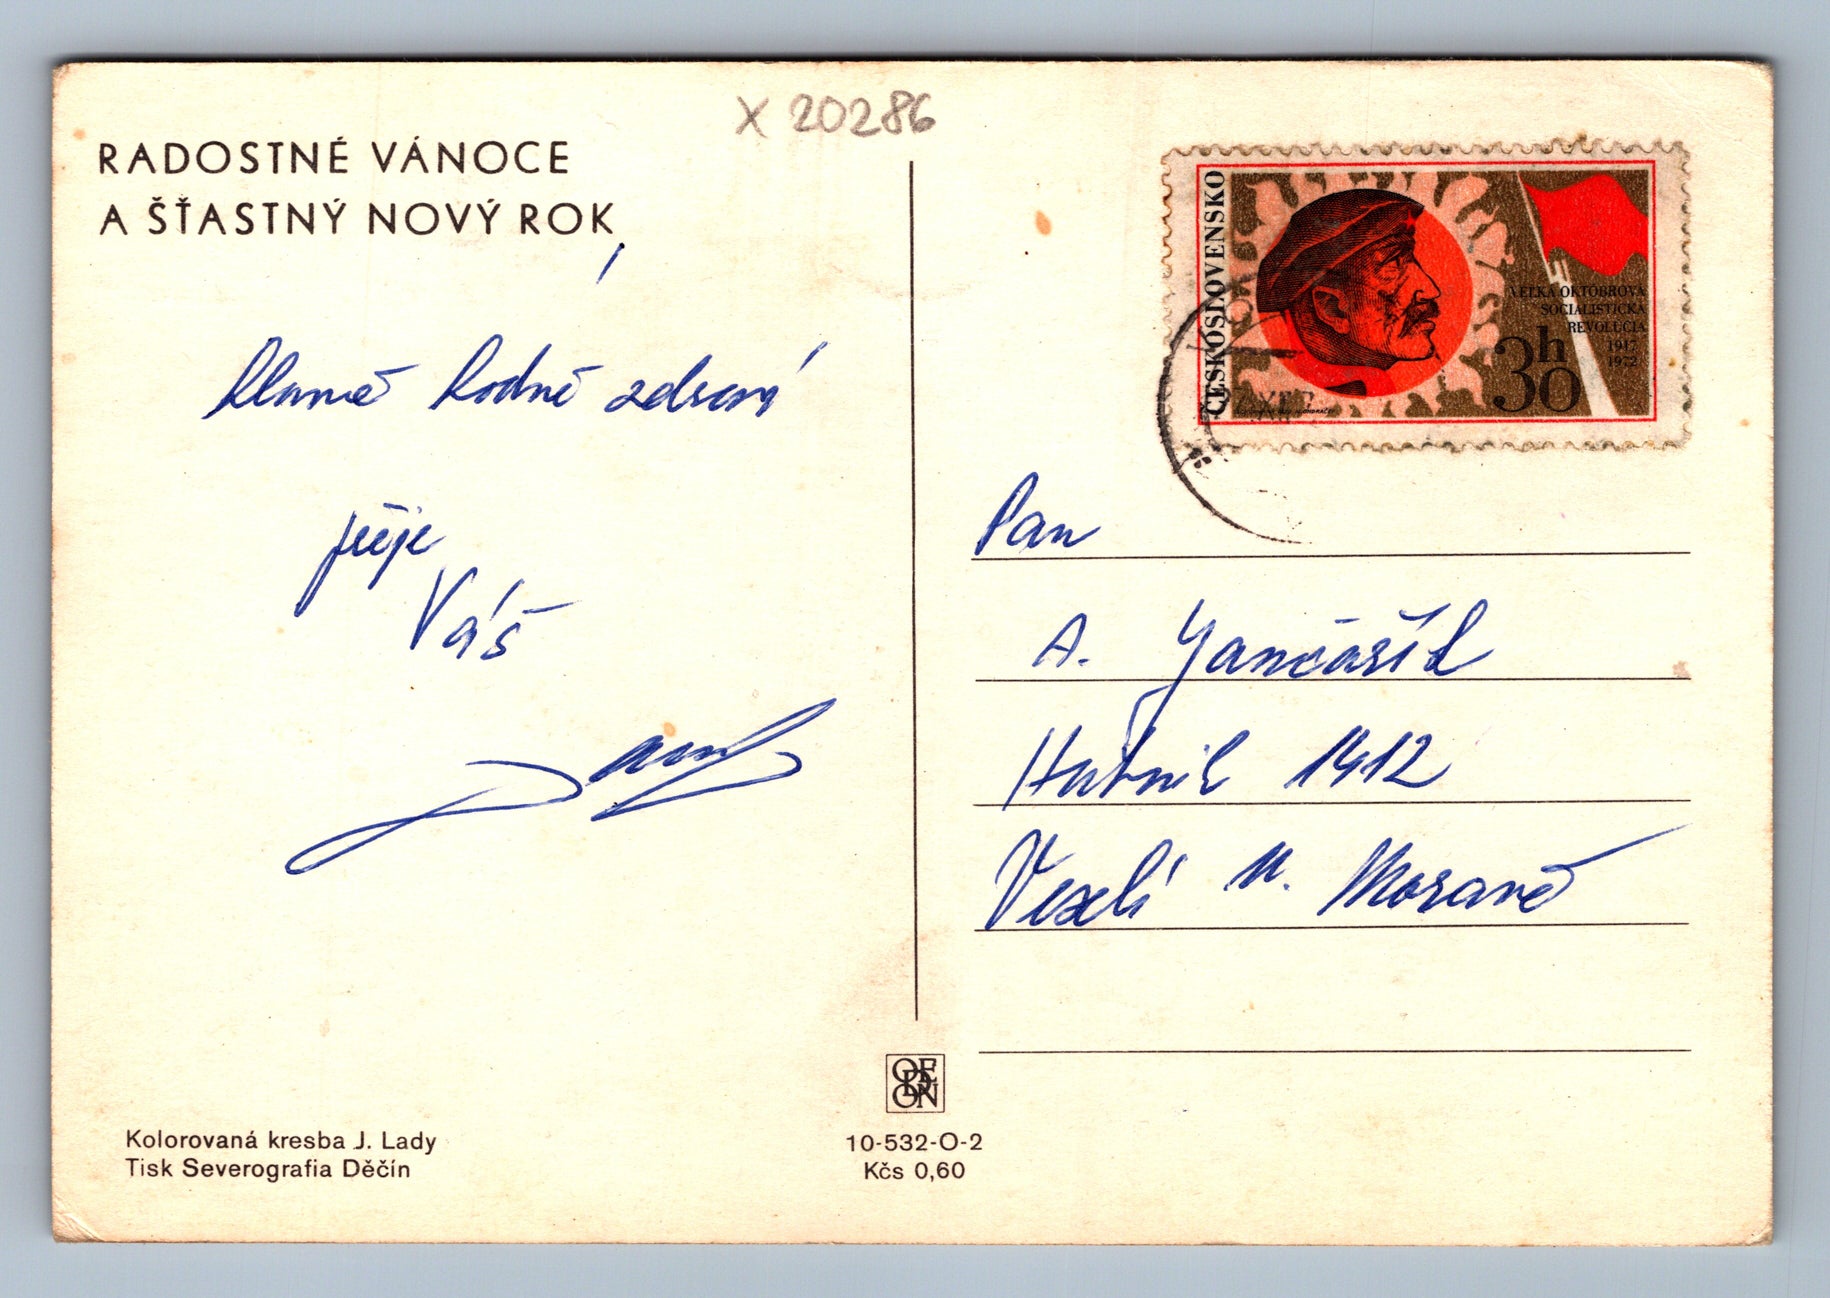 X 20286
RADOSTNÉ VÁNOCE
A ŠŤASTNÝ NOVÝ ROK
hlavně hodně zdraví
přeje
Váš
ČESKOSLOVENSKO
VEĽKÁ OKTÓBROVÁ
SOCIALISTICKÁ
REVOLÚCIA
1917
1972
30h
Pan
A. Jančařík
Hutník 1412
Veselí n. Moravě
ODEON
Kolorovaná kresba J. Lady
Tisk Severografia Děčín
10-532-O-2
Kčs 0,60